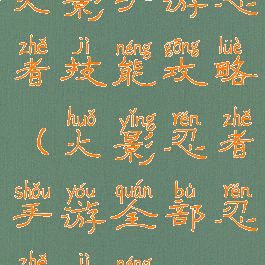 火影手游忍
zhě jì néng gōng lüè
者技能攻略
huǒ yǐng rěn zhě
（火影忍者
shǒu yóu quán bù rěn
手游全部忍
zhě jì néng